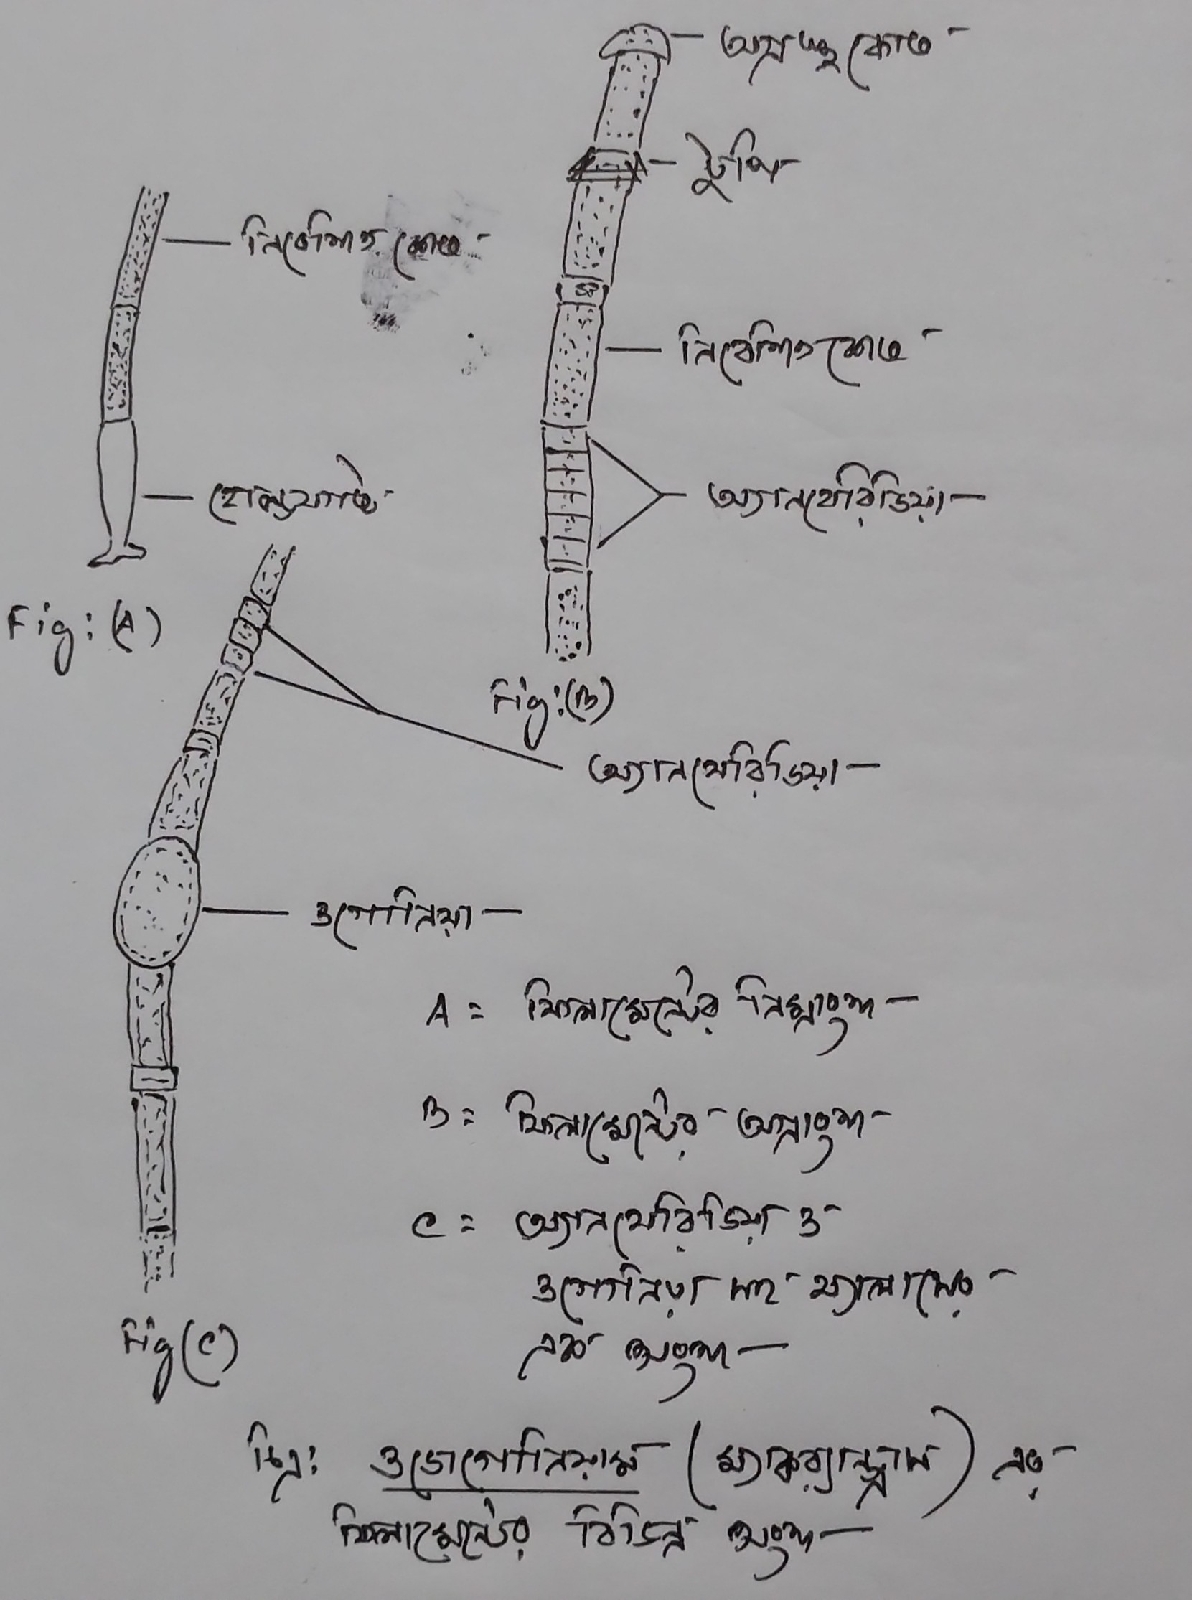 অগ্রস্থ কোষ
টুপি
নিবেশিত কোষ
নিবেশিত কোষ
হোল্ডফাস্ট
অ্যানথেরিডিয়া
Fig: (A)
Fig: (B)
অ্যানথেরিডিয়া
ওগোনিয়া
A = ফিলামেন্টের নিম্নাংশ
B = ফিলামেন্টের অগ্রাংশ
C = অ্যানথেরিডিয়া ও
ওগোনিয়া সহ থ্যালাসের
এক অংশ
Fig (C)
চিত্র: ওডোগোনিয়াম (ম্যাক্রান্ড্রাস) এর
ফিলামেন্টের বিভিন্ন অংশ